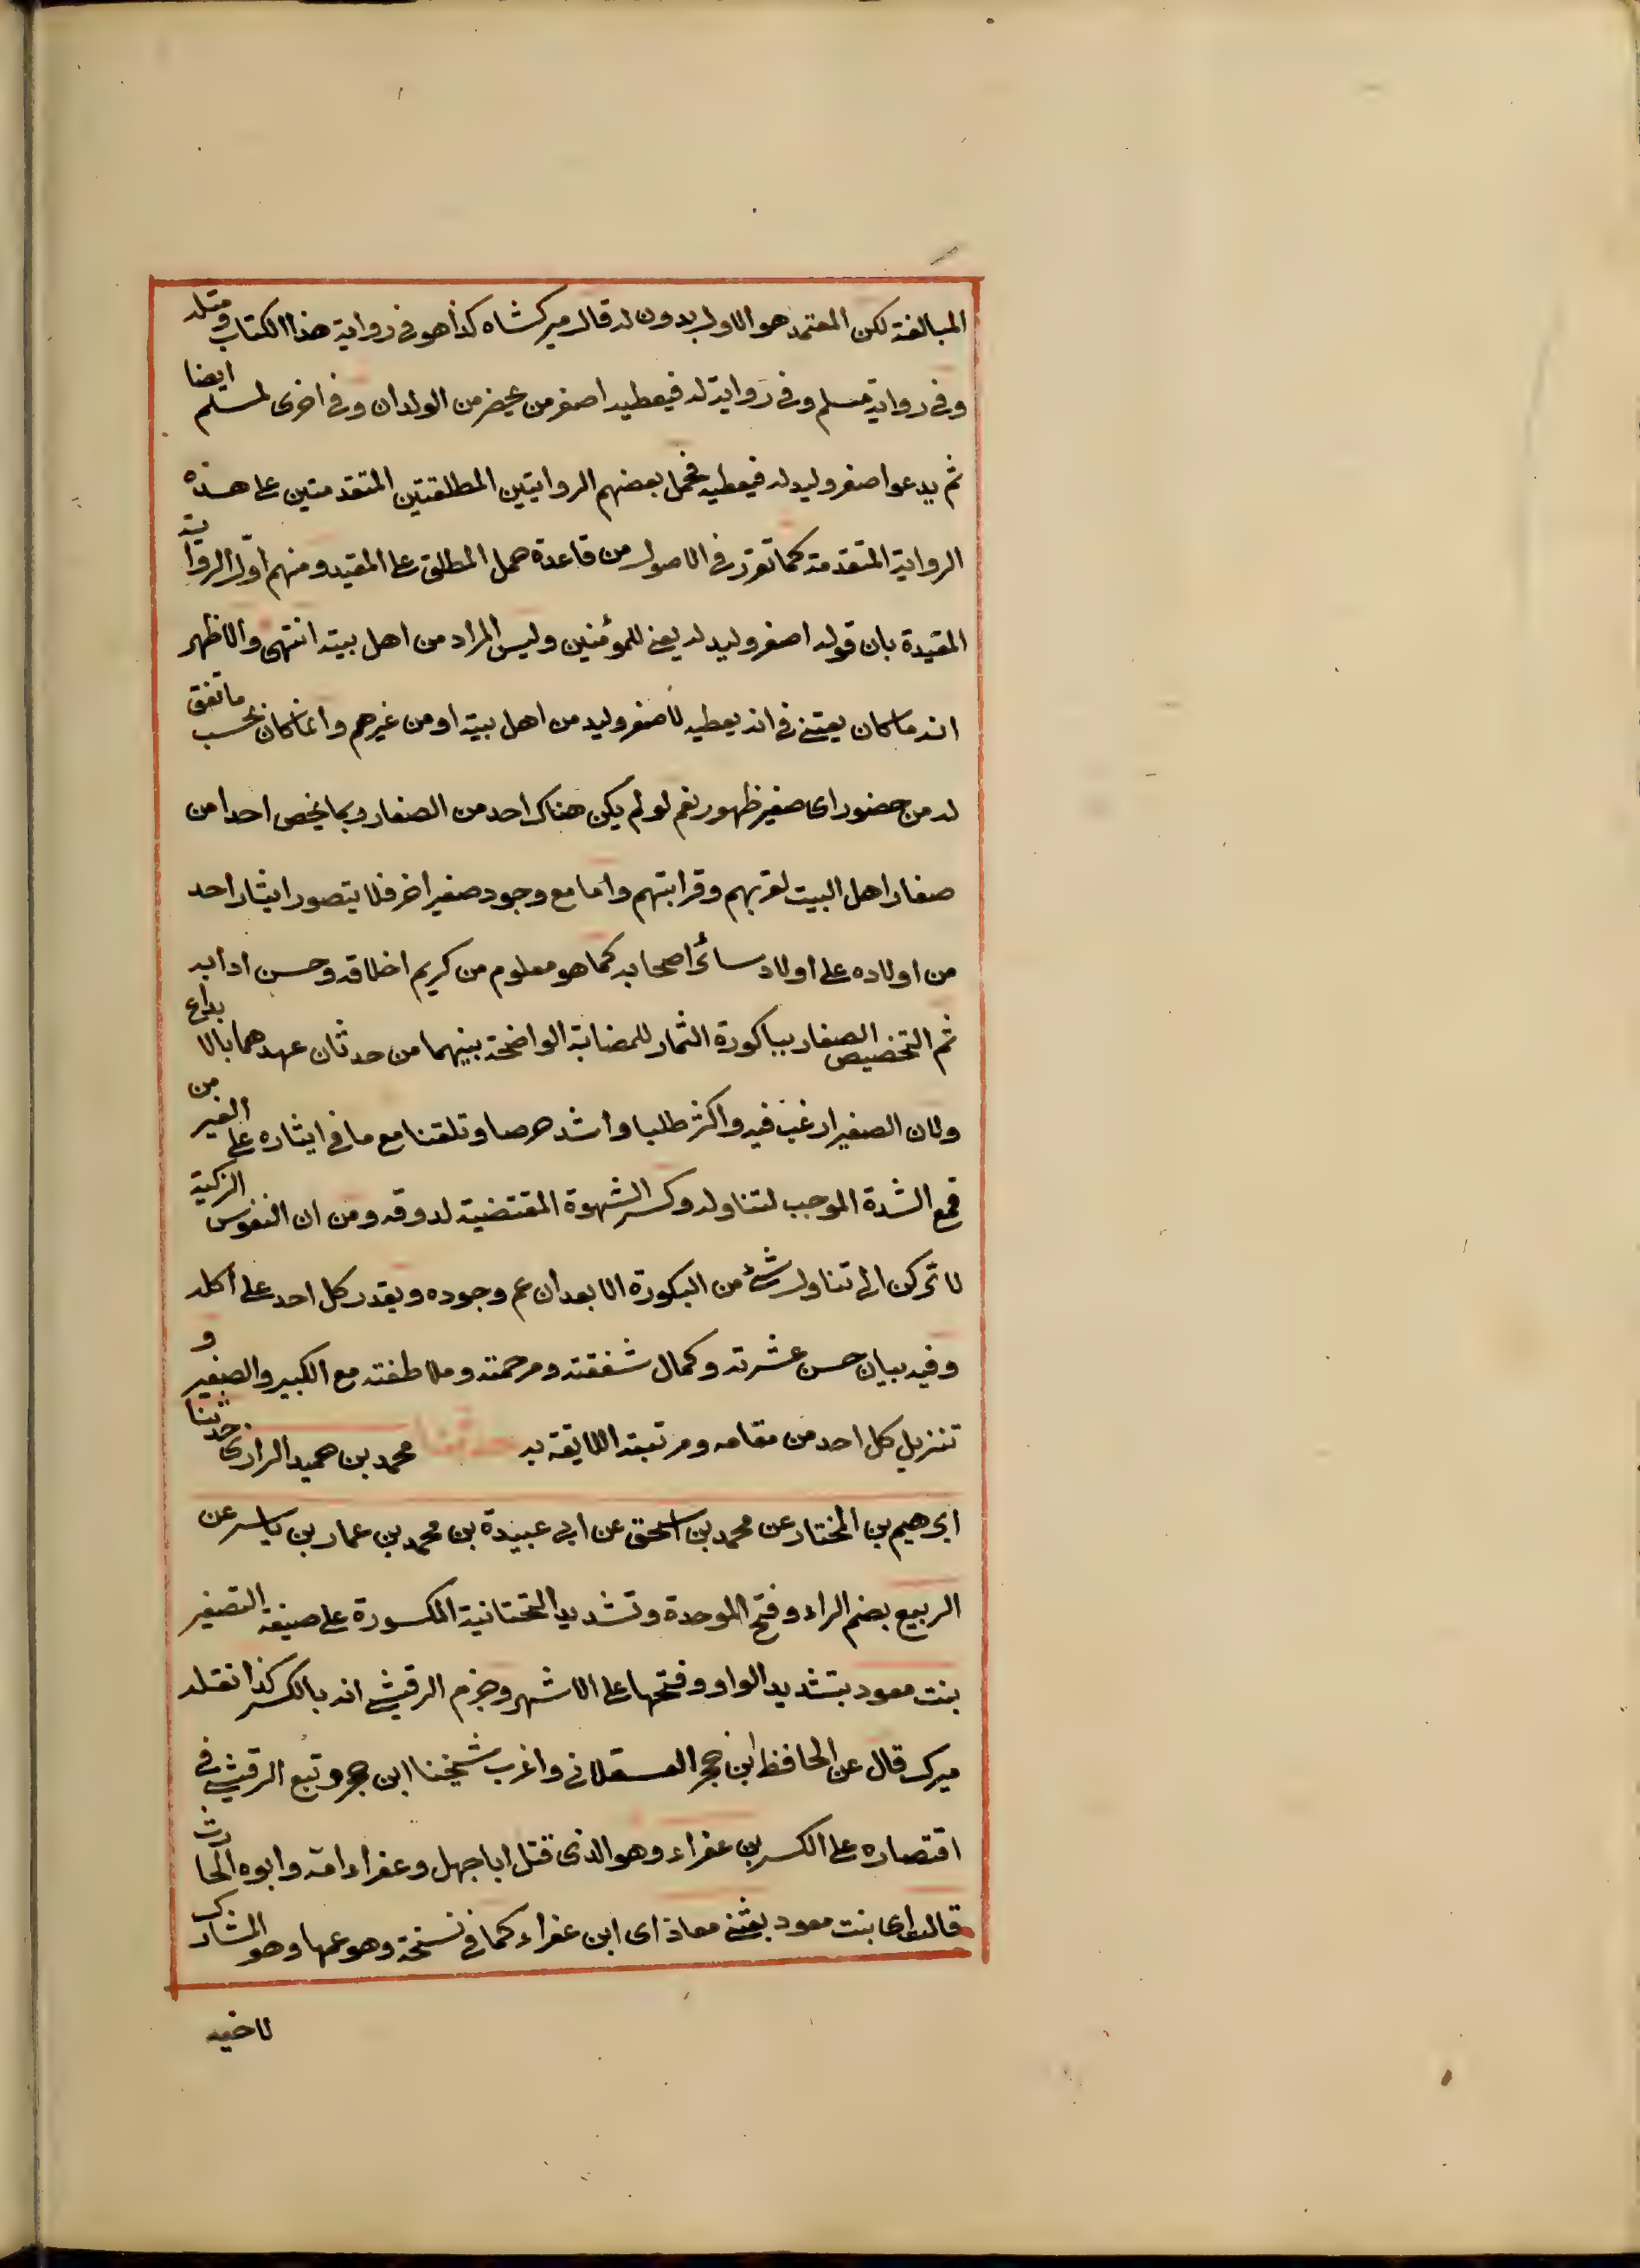 المبالغة لكن المعتمد هو الاول بدون له قال ميركشاه كذا هو فى رواية هذا الكتاب ومثله
وفى رواية مسلم وفى رواية له فيعطيه اصغر من يحضر من الولدان وفى اخرى لمسلم ايضا
ثم يدعو اصغر وليد له فيعطيه فحمل بعضهم الروايتين المطلقتين المتقدمتين على هذه
الرواية المتقدمة كما تقرر فى الاصول من قاعدة حمل المطلق على المقيد ومنهم اوّل الرواية
المقيدة بان قوله اصغر وليد له يعنى للمؤمنين وليس المراد من اهل بيته انتهى والاظهر
انه ما كان يعتنى فى انه يعطيه لاصغر وليد من اهل بيته او من غيرهم وانما كان بحسب ما تفق
له من حضور اى صغير ظهور نعم لو لم يكن هناك احد من الصغار ربما يخص احدا من
صغار اهل البيت لقربهم وقرابتهم واما مع وجود صغير اخر فلا يتصور ايثار احد
من اولاده على اولاد سائر اصحابه كما هو معلوم من كريم اخلاقه وحسن ادابه
ثم التخصيص الصغار بباكورة الثمار للمضابة الواضحة بينهما من حدثان عهدهما بالابداع
ولان الصغير ارغب فيه واكثر طلبا واشد حرصا وتلقتنا مع ما فى ايثاره على الغير من
قمع الشدة الموجب لتناوله وكسر الشهوة المقتضية لدوقه ومن ان النفوس الزكية
لا تركن الى تناول شئ من البكورة الا بعد ان عم وجوده ويقدر كل احد على اكله
وفيه بيان حسن عشرته وكمال شفقته ومرحمته وملاطفته مع الكبير والصغير و
تنزيل كل احد من مقامه ومرتبته اللايقة به حدثنا محمد بن حميد الرازى حدثنا
ابرهيم بن المختار عن محمد بن اسحق عن ابى عبيدة بن محمد بن عمار بن ياسر عن
الربيع بضم الراء وفتح الموحدة وتشديد التحتانية المكسورة على صيغة التصغير
بنت معود بتشديد الواو وفتحها على الاشهر وجزم الرقشى انه بالكسر كذا نقله
ميرك قال عن الحافظ ابن حجر العسقلانى واغرب شيخنا ابن حجر وتبع الرقشى فى
اقتصاره على الكسر بن عفراء وهو الذى قتل ابا جهل وعفراء امه وابوه الحارث
قالت اى بنت معود بعثنى معاذ اى ابن عفراء كما فى نسخة وهو عمها وهو المشارك
لاخيه